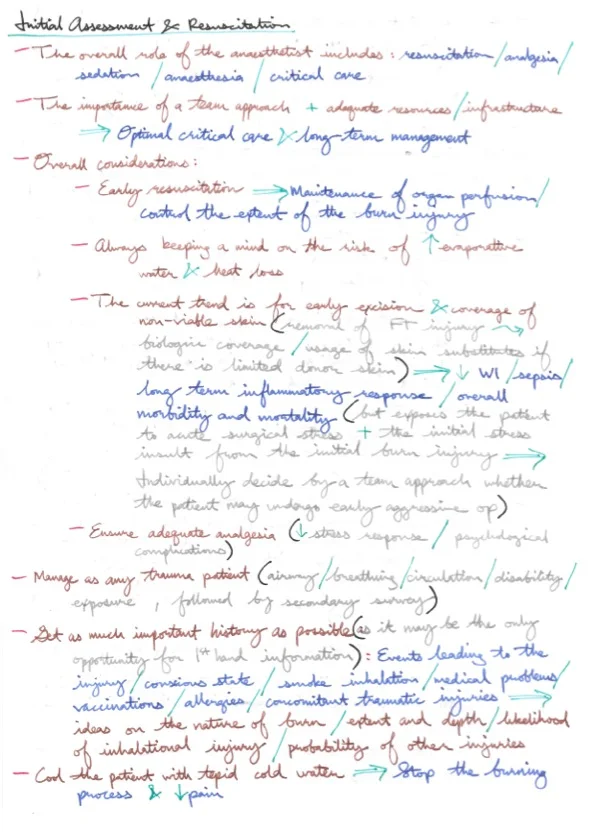 Initial Assessment & Resuscitation
– The overall role of the anaesthetist includes : resuscitation / analgesia /
sedation / anaesthesia / critical care
– The importance of a team approach + adequate resources / infrastructure
⇒ Optimal critical care & long-term management
– Overall considerations :
– Early resuscitation ⇒ Maintenance of organ perfusion /
control the extent of the burn injury
– Always keeping a mind on the risk of ↑ evaporative
water & heat loss
– The current trend is for early excision & coverage of
non-viable skin (removal of FT injury →
biologic coverage / usage of skin substitutes if
there is limited donor skin) ⇒ ↓ WI / sepsis /
long term inflammatory response / overall
morbidity and mortality (but exposes the patient
to acute surgical stress + the initial stress
insult from the initial burn injury ⇒
Individually decide by a team approach whether
the patient may undergo early aggressive op)
– Ensure adequate analgesia (↓ stress response / psychological
complications)
– Manage as any trauma patient (airway / breathing / circulation / disability /
exposure , followed by secondary survey)
– Get as much important history as possible (as it may be the only
opportunity for 1st hand information) : Events leading to the
injury / conscious state / smoke inhalation / medical problems /
vaccinations / allergies / concomitant traumatic injuries ⇒
ideas on the nature of burn / extent and depth / likelihood
of inhalational injury / probability of other injuries
– Cool the patient with tepid cold water ⇒ Stop the burning
process & ↓ pain